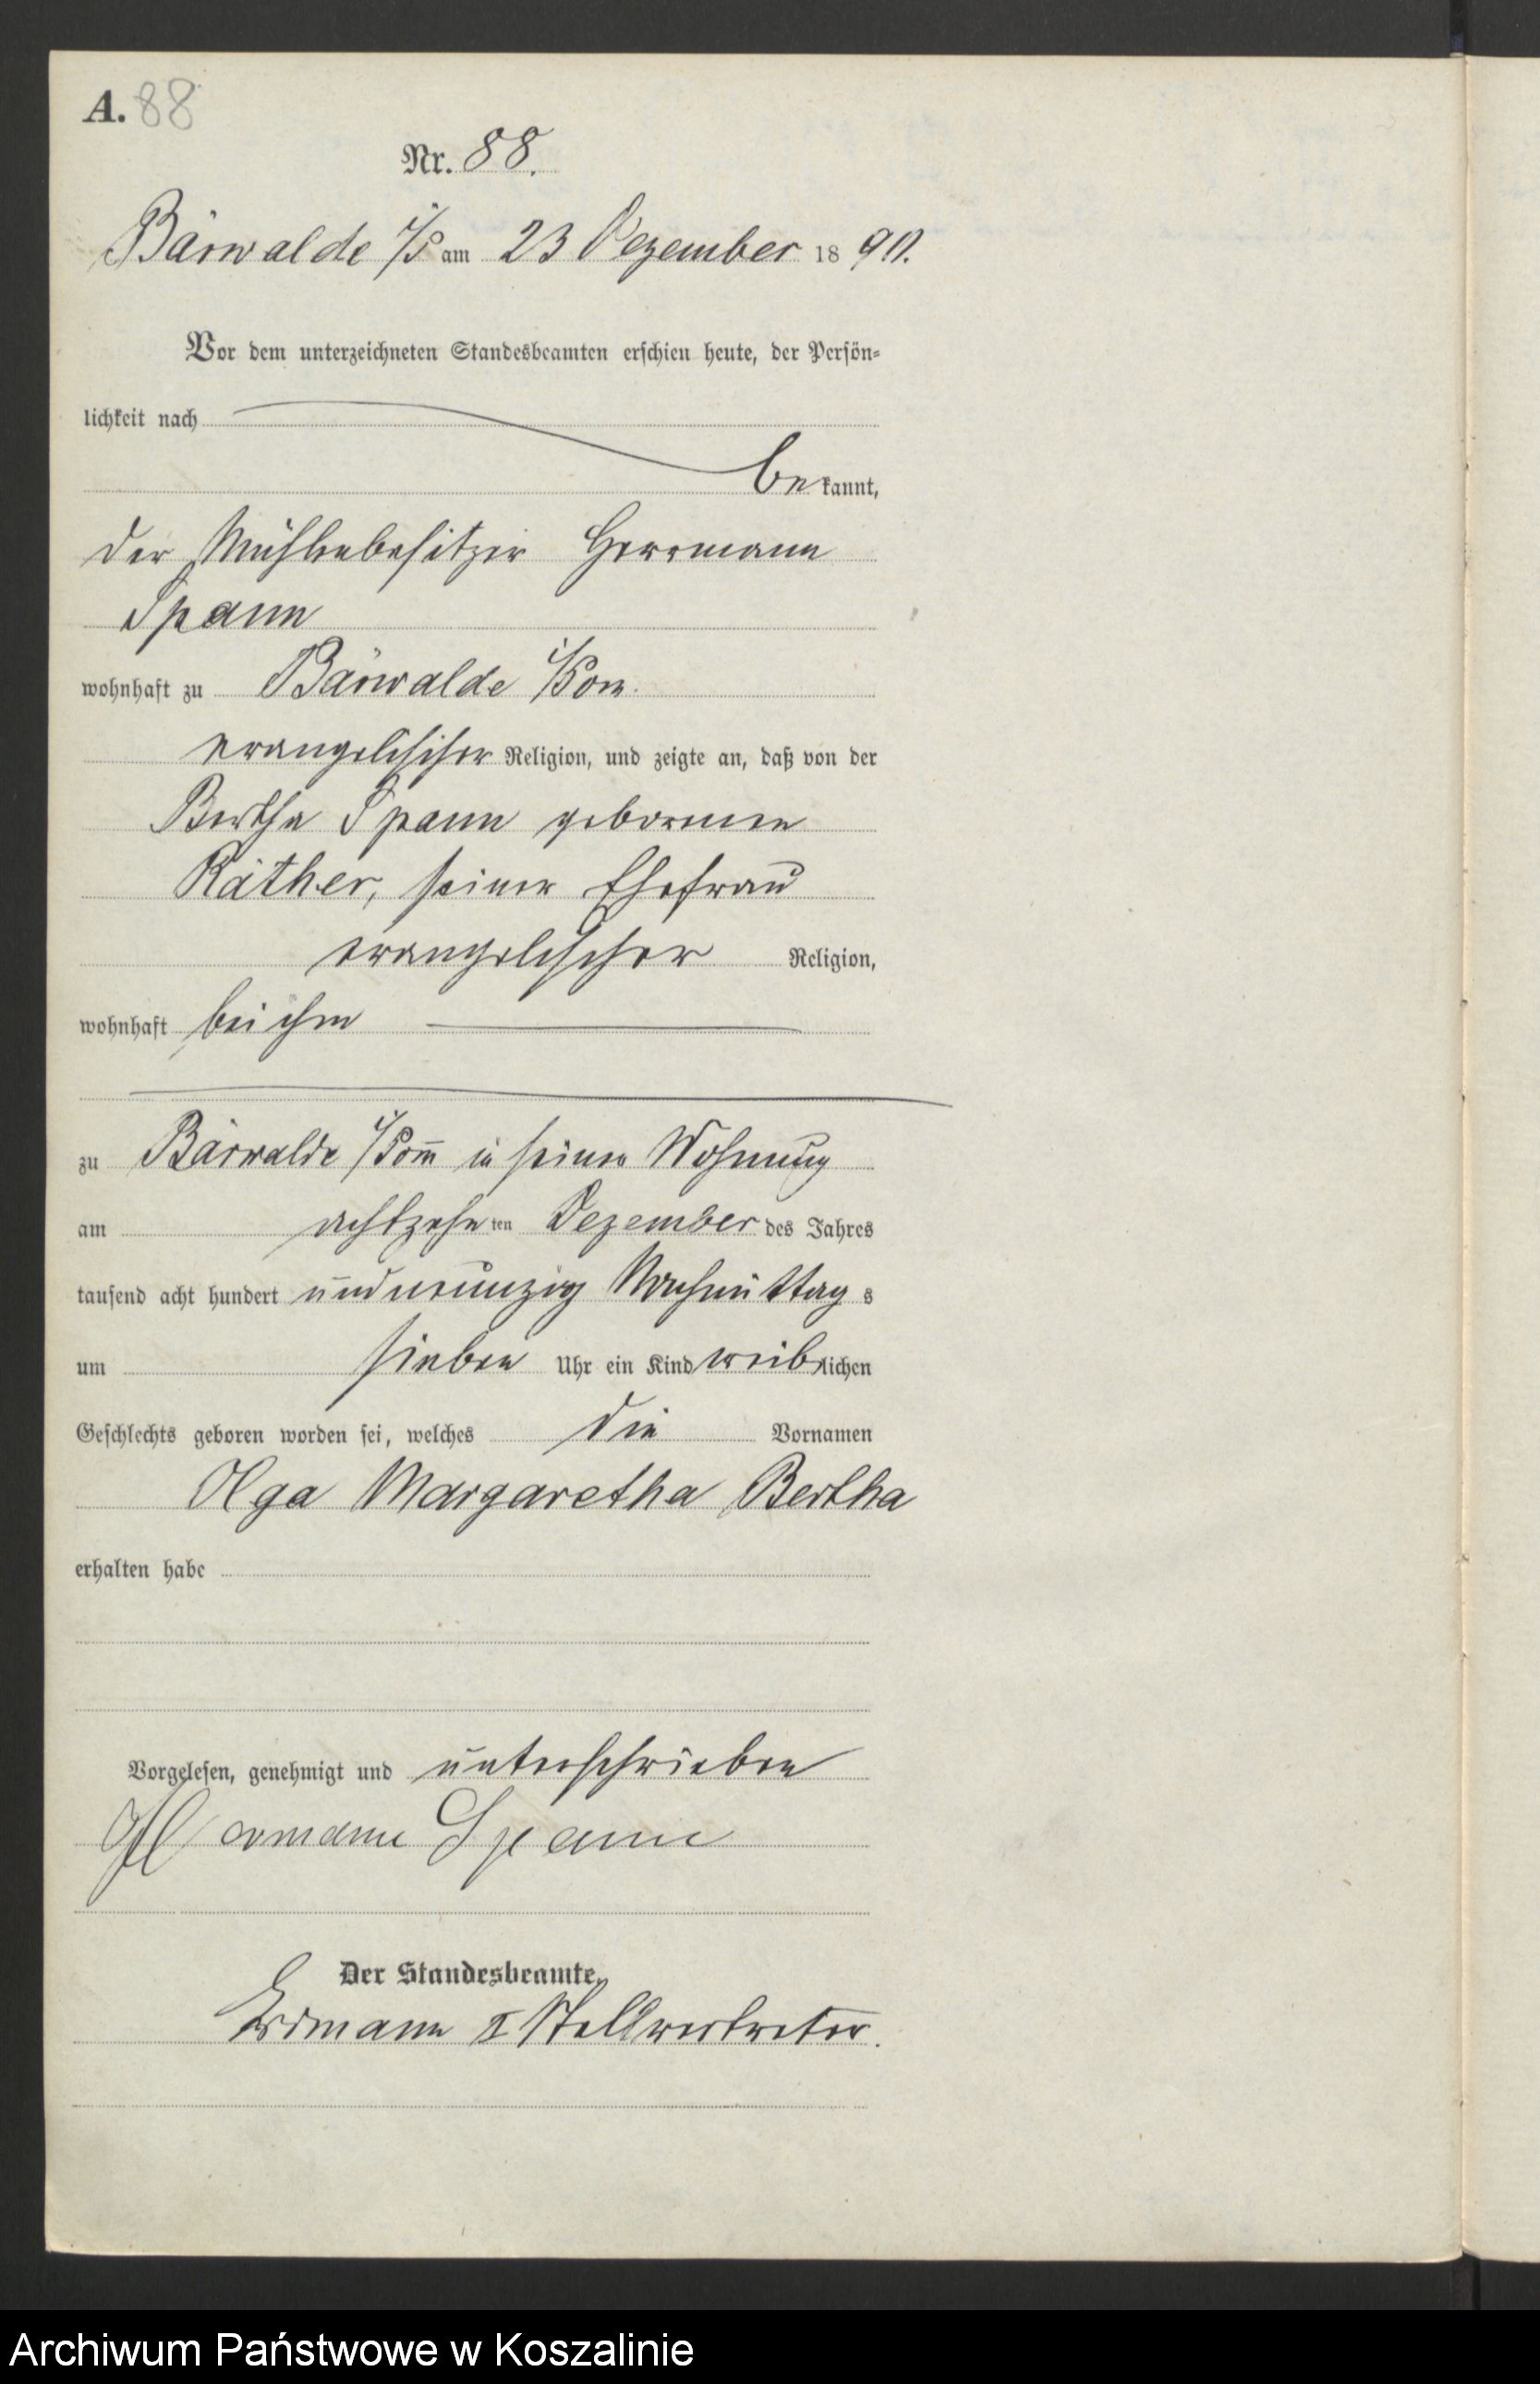 A. 88
Nr. 88.
Bärwalde i/P am 23 Dezember 1890.
Vor dem unterzeichneten Standesbeamten erschien heute, der Persön-
lichkeit nach
bekannt,
der Mühlenbesitzer Herrmann
Spann
wohnhaft zu Bärwalde i/Pom.
evangelischer Religion, und zeigte an, daß von der
Bertha Spann geborenen
Räther, seiner Ehefrau
evangelischer Religion,
wohnhaft bei ihm
zu Bärwalde i/Pom̄ in seiner Wohnung
am achtzehnten Dezember des Jahres
tausend acht hundert und neunzig Nachmittags
um sieben Uhr ein Kind weiblichen
Geschlechts geboren worden sei, welches die Vornamen
Olga Margaretha Bertha
erhalten habe
Vorgelesen, genehmigt und unterschrieben
Hermann Spann
Der Standesbeamte,
Erdmann II Stellvertreter.
Archiwum Państwowe w Koszalinie